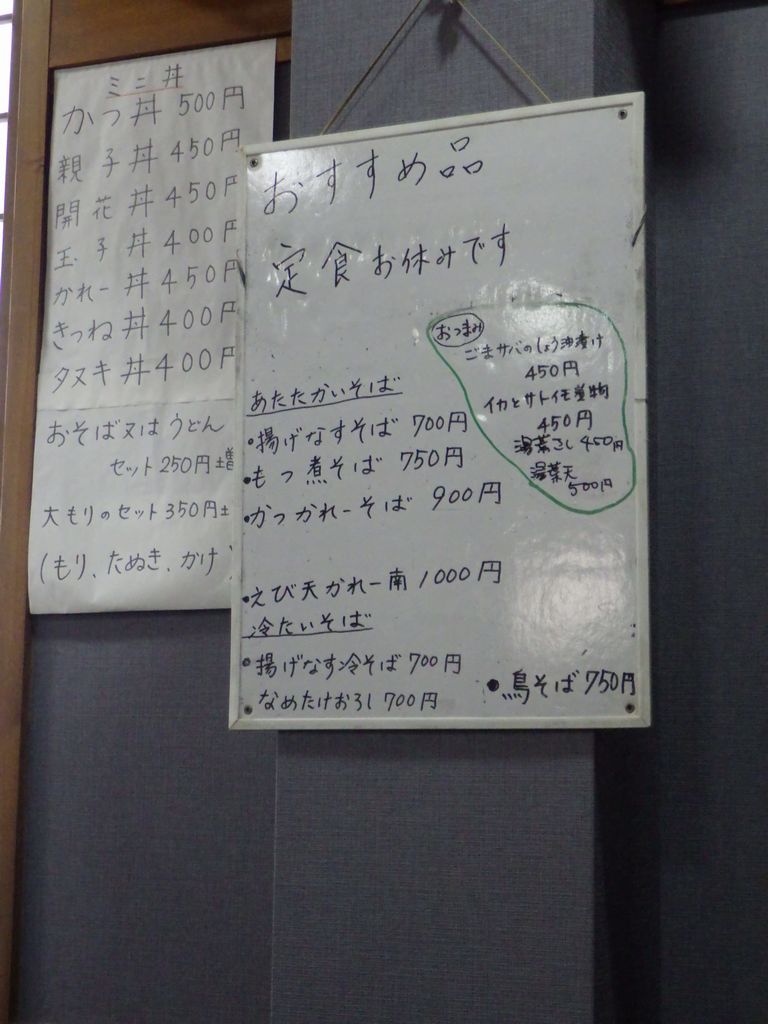 ミニ丼
かつ丼 500円
親子丼 450円
開花丼 450円
玉子丼 400円
かれー丼 450円
きつね丼 400円
タヌキ丼 400円
おそば又はうどん
セット 250円増
大もりのセット 350円土
(もり、たぬき、かけ)
おすすめ品
定食お休みです
おつまみ
ごまサバのしょう油漬け
450円
イカとサトイモ煮物
450円
湯葉さし 450円
湯葉天
500円
あたたかいそば
・揚げなすそば 700円
・もつ煮そば 750円
・かつかれーそば 900円
・えび天かれー南 1000円
冷たいそば
・揚げなす冷そば 700円
なめたけおろし 700円
・鳥そば 750円